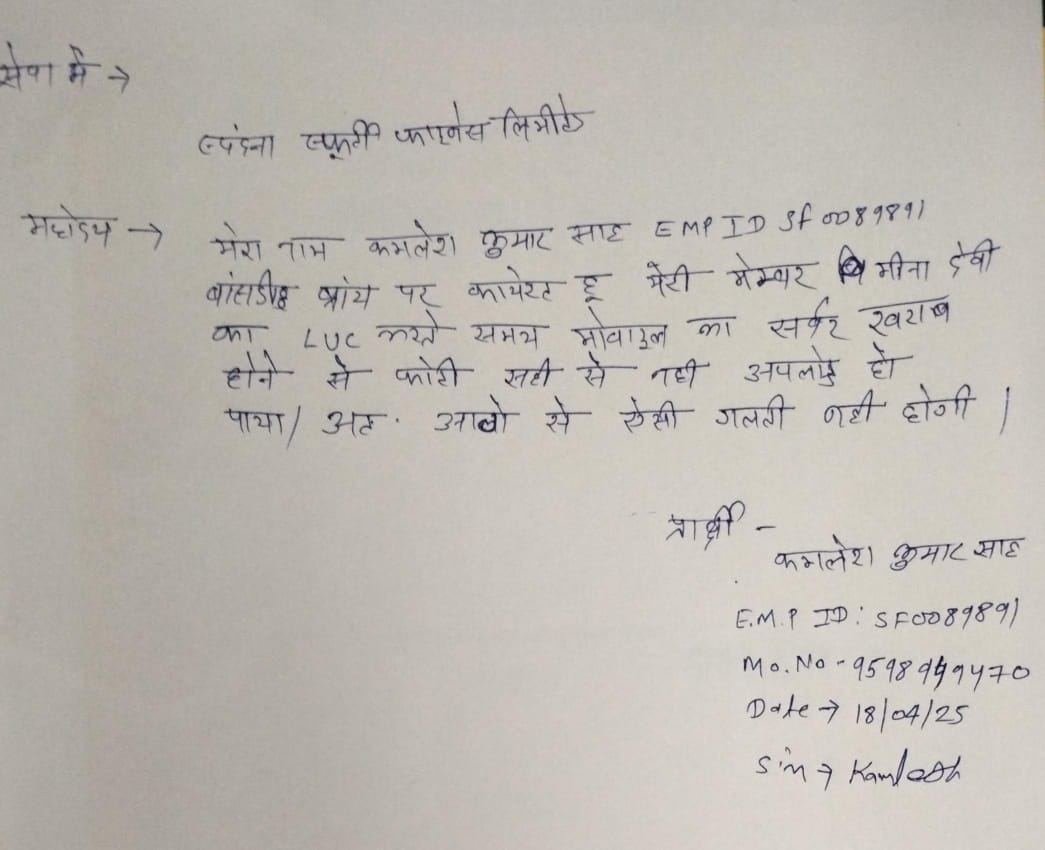 सेवा में →
स्पंदना स्फूर्ती फाइनेंस लिमीटेड
महोदय →
मेरा नाम कमलेश कुमार साह EMP ID Sf 0089891
बांसडीह ब्रांच पर कार्यरत हू मेरी मेम्बर मीना देवी
का LUC करते समय मोवाइल का सर्वर खराब
होने से फोटो सही से नही अपलोड हो
पाया। अतः आगे से ऐसी गलती नही होगी।
प्रार्थी -
कमलेश कुमार साह
E.M.P ID: SF0089891
Mo. No -
Date → 18/04/25
Sin → Kamlesh